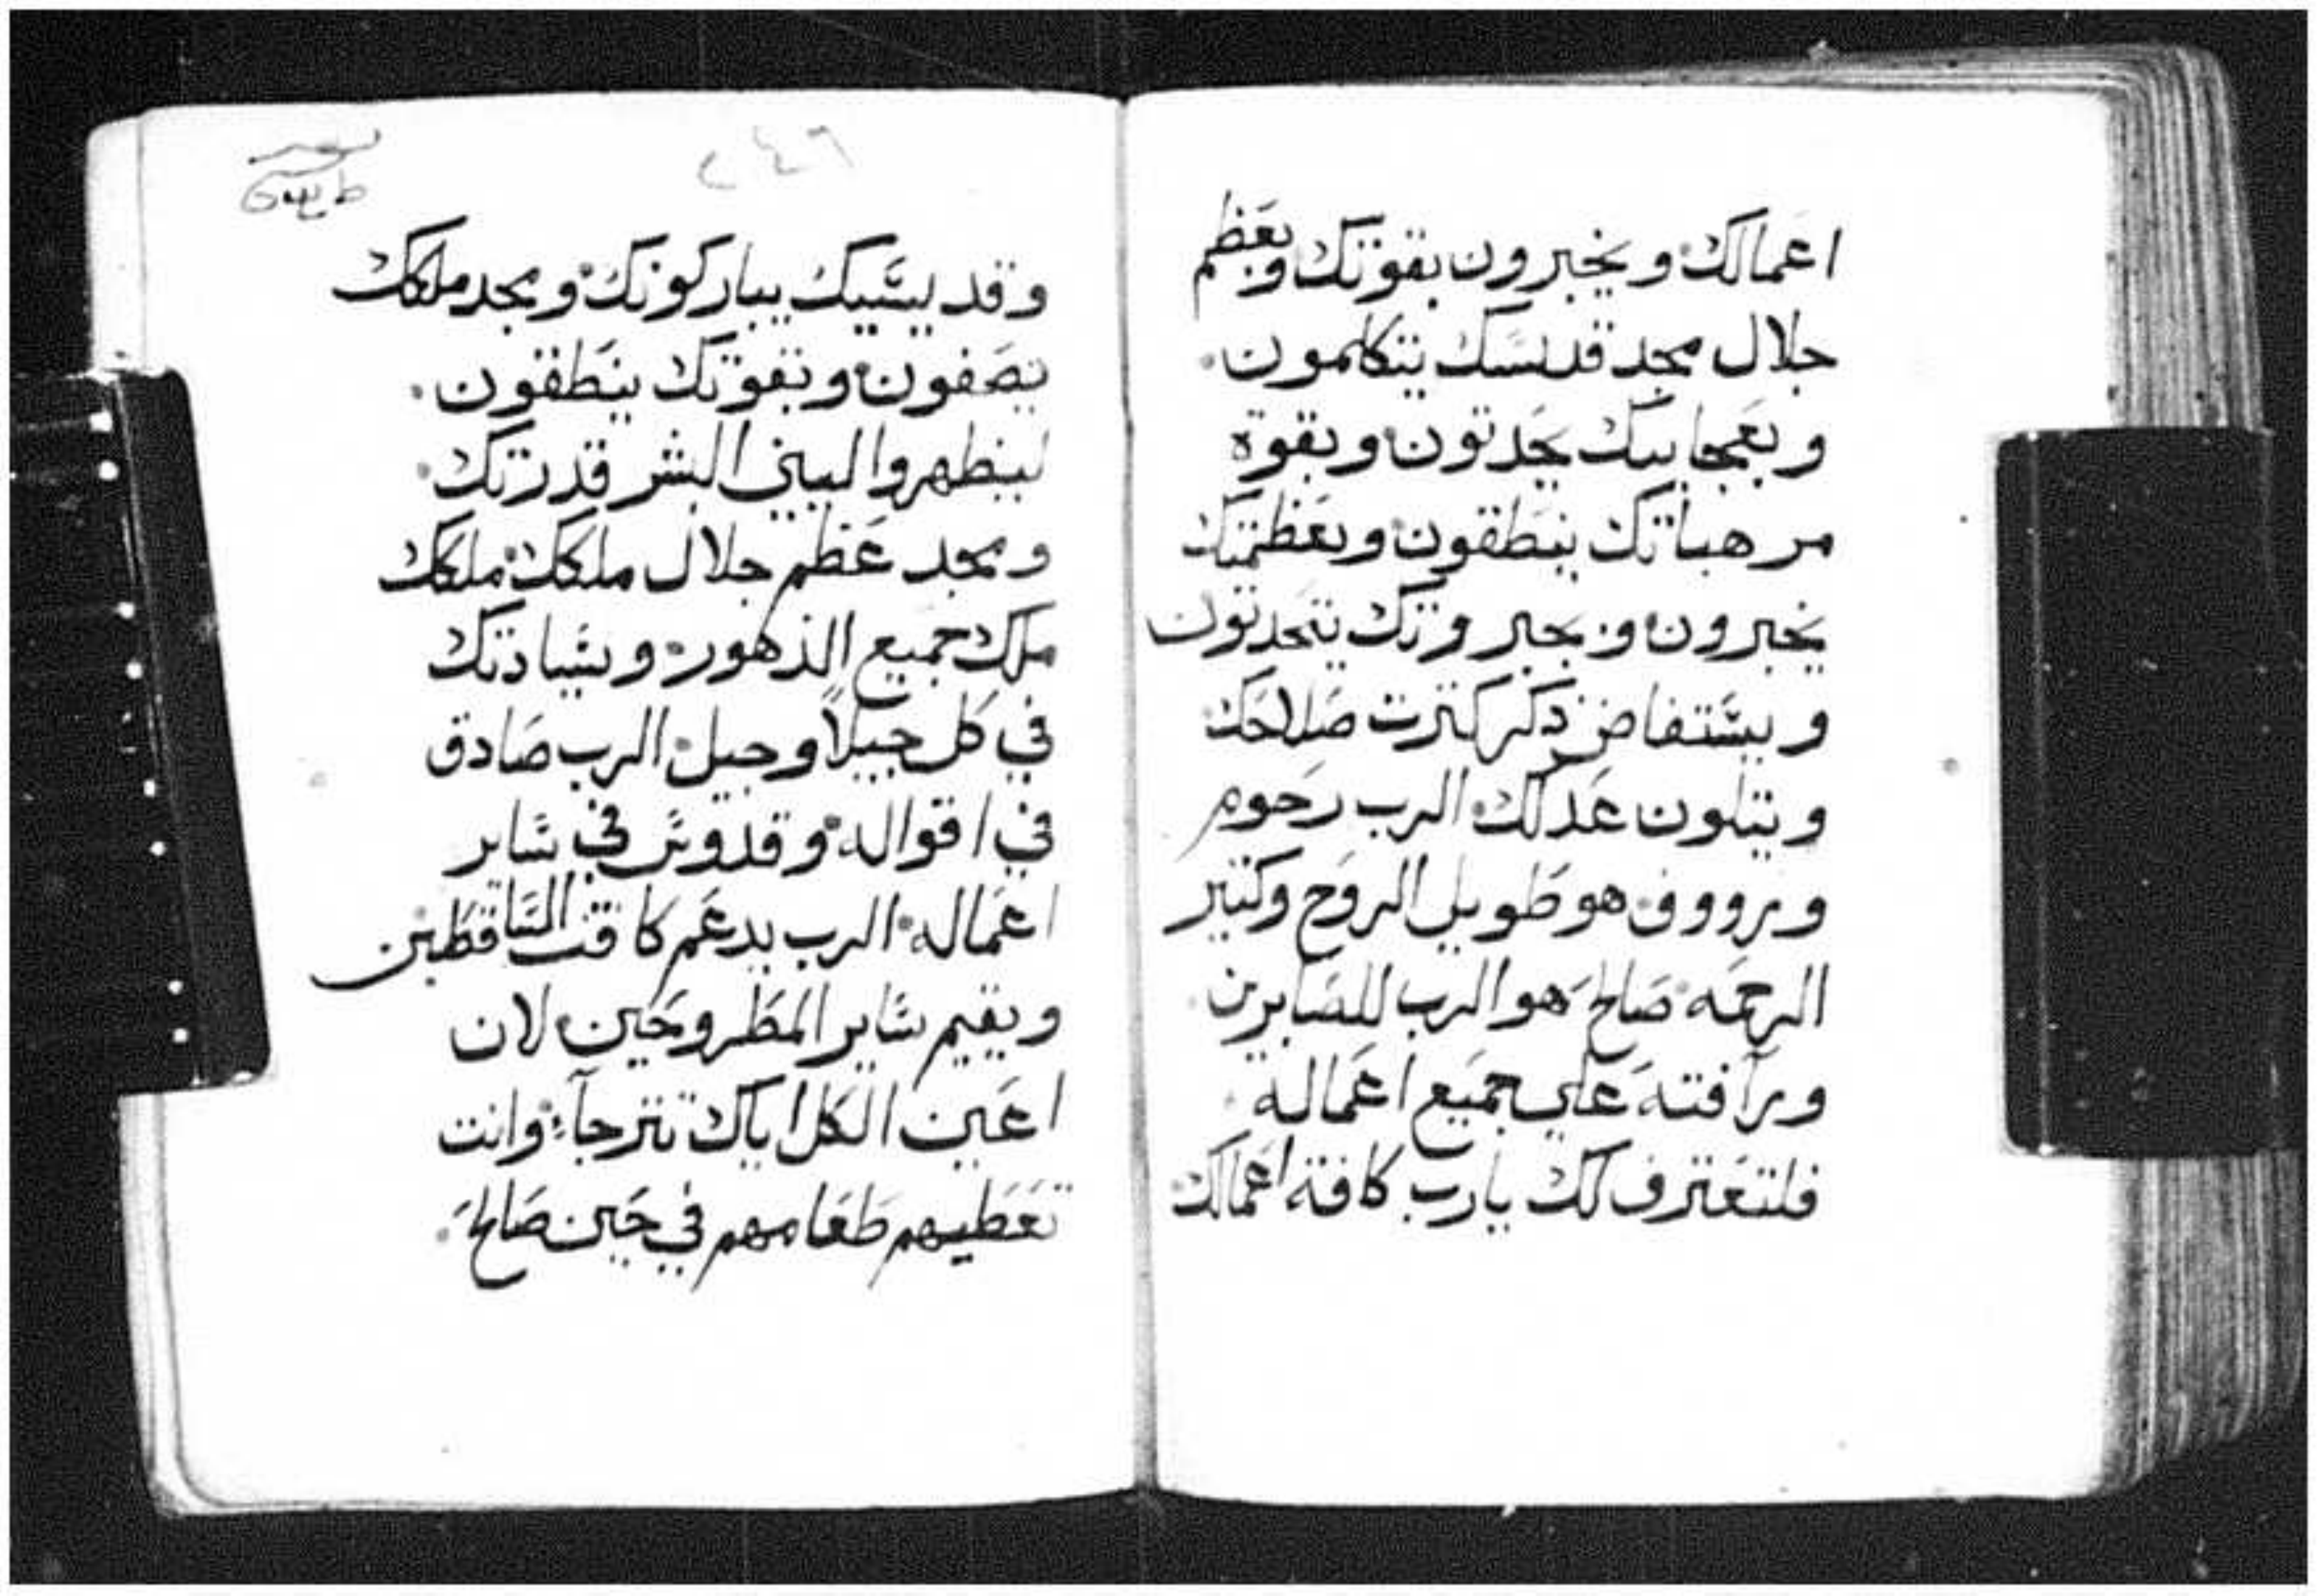 اعمالك ويخبرون بقوتك وبعظم
جلال مجد قدسك يتكلمون.
وبعجايبك يحدتون وبقوة
مرهباتك ينطقون وبعظمتك
يخبرون وبجبروتك يتحدتون
ويستفاض ذكر كترت صلاحك
ويتلون عدلك الرب رحوم
ورووف هو طويل الروح وكتير
الرحمه صالح هو الرب للصابرين
ورآفته علي جميع اعماله
فلتعترف لك يارب كافة اعمالك
٢٤٦
وقديسيك يباركونك ومجد ملكك
يصفون وبقوتك ينطقون.
لينظهروا لبيني البشر قدرتك
ومجد عظم جلال ملكك ملكك
ملك جميع الدهور وسيادتك
في كل جيلاً وجيل الرب صادق
في اقواله وقدوس في ساير
اعماله الرب يدعم كافت الساقطين
ويقيم ساير المطروحين لان
اعين الكل اياك تترجآء وانت
تعطيهم طعامهم في حين صالح.